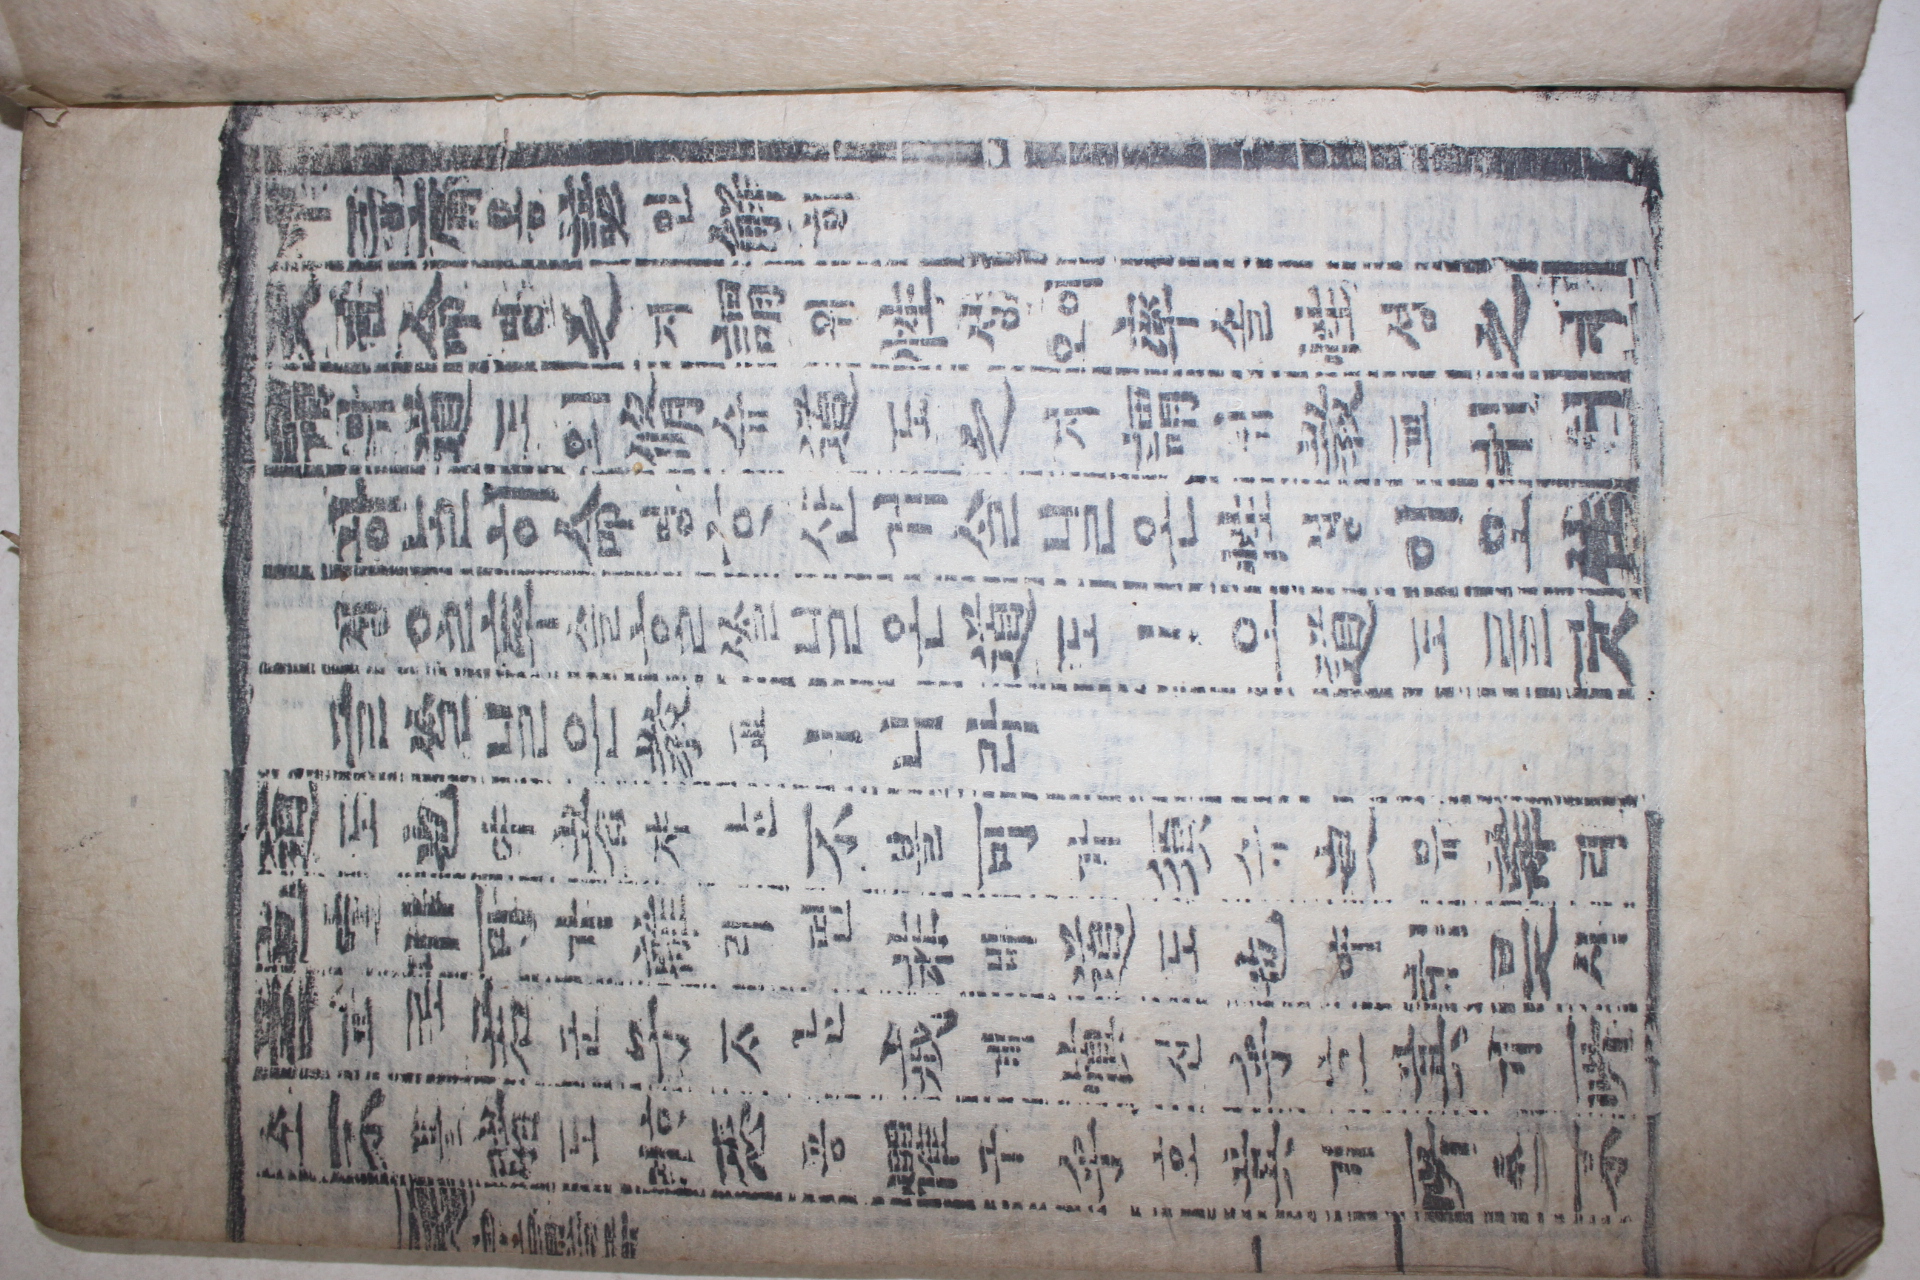 中庸용諺언解ᄒᆡ
天텬命명之지謂위性셩이오率솔性셩之지
謂위道도ㅣ오修슈道도之지謂위敎교ㅣ니라
하ᄂᆞᆯ히命명ᄒᆞ샨거슬닐온性셩이오性
셩을率솔ᄒᆞᆯ쏠닐온道도ㅣ오道도를닷
글쏠닐온敎교ㅣ니라
道도也야者쟈ᄂᆞᆫ不블可가須슈臾유離리
也야ㅣ니可가離리면非비道도也야ㅣ라是시
故고로君군子ᄌᆞᄂᆞᆫ戒계愼신乎호其기所
소不블睹도ᄒᆞ며恐공懼구乎호其기所소不